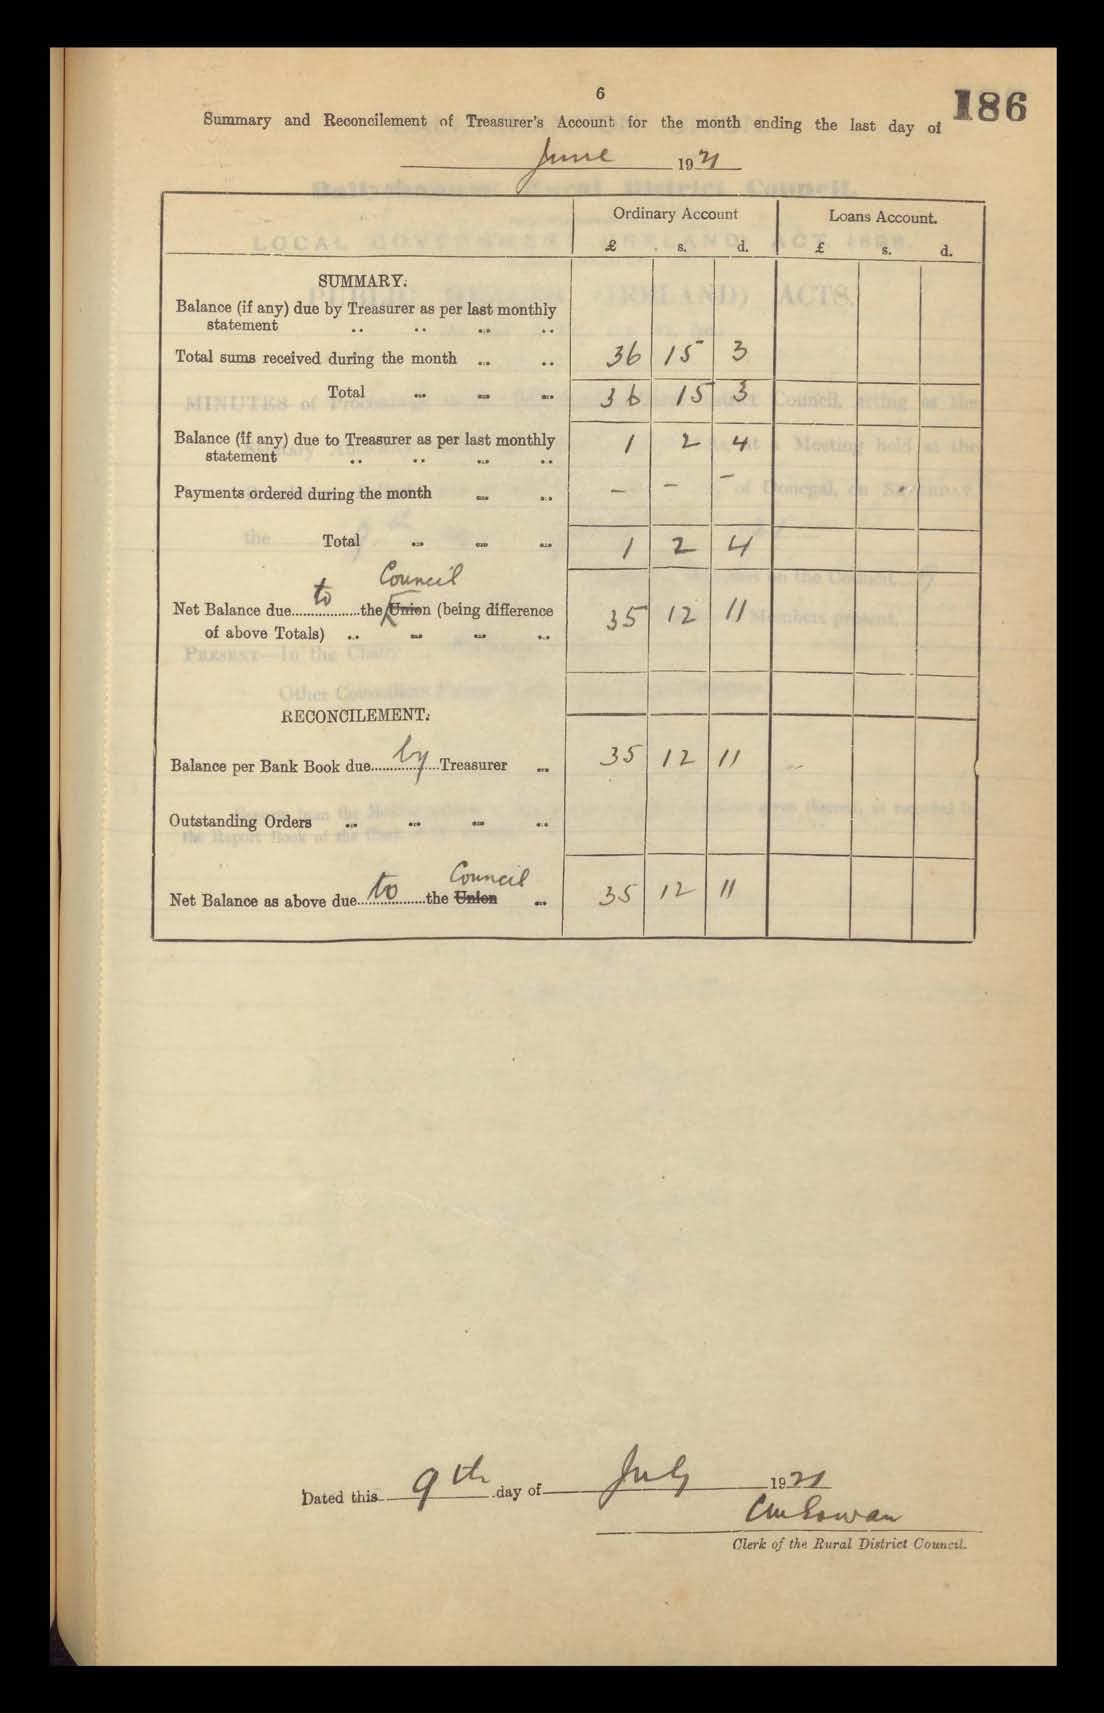 6
186
Summary and Reconcilement of Treasurer's Account for the month ending the last day of
June 1921
Ordinary Account Loans Account.
£ s. d. £ s. d.
SUMMARY.
Balance (if any) due by Treasurer as per last monthly
statement
Total sums received during the month 36 15 3
Total 36 15 3
Balance (if any) due to Treasurer as per last monthly 1 2 4
statement
Payments ordered during the month – – –
Total 1 2 4
Council
Net Balance due to the Union (being difference 35 12 11
of above Totals)
RECONCILEMENT.
Balance per Bank Book due by Treasurer 35 12 11
Outstanding Orders
Council
Net Balance as above due to the Union 35 12 11
Dated this 9th day of July 1921
Clerk of the Rural District Council.